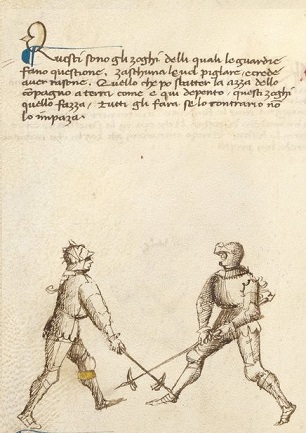 Questi sono gli zoghi delli quali le guardie
fano questione. zaschuna le vol pigiare, e crede
aver rasone. Quello che po sbatter la azza dello
cōpagno a terra come e qui depento, questi zoghi
quello fazza, tutti gli fara se lo contrario nō
lo impaza.